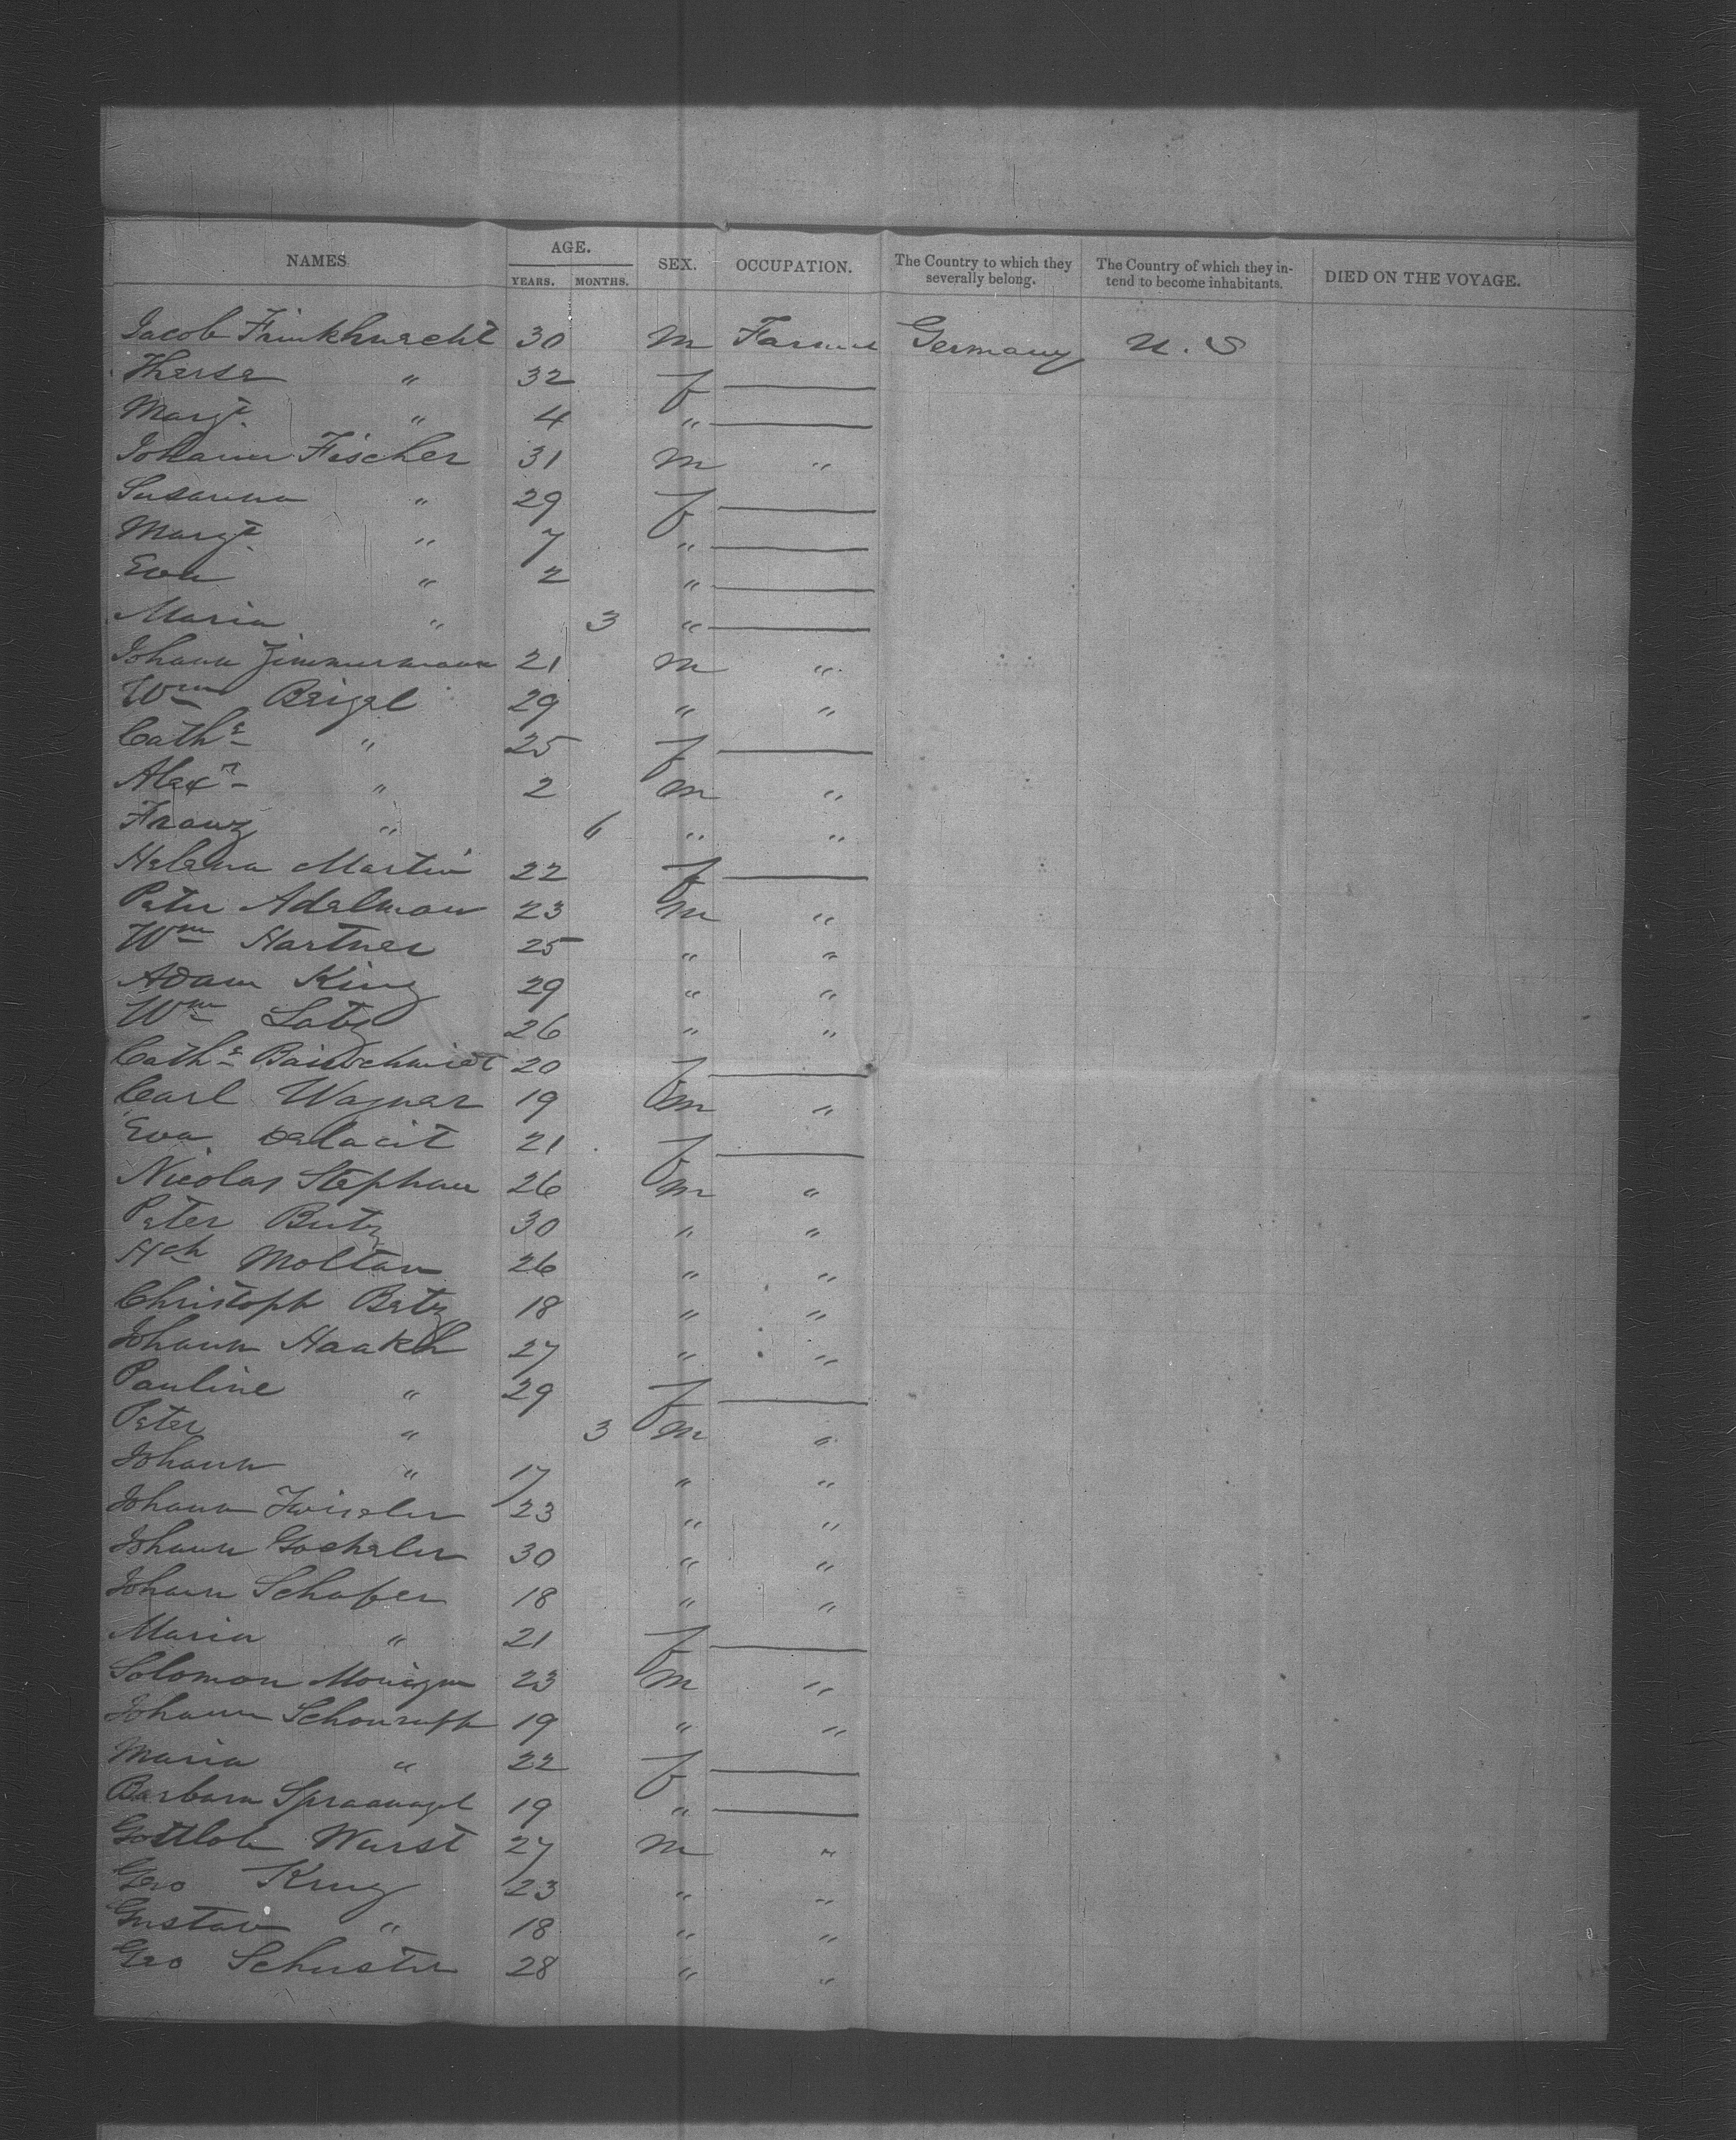 NAMES AGE. YEARS. MONTHS. SEX. OCCUPATION. The Country to which they severally belong. The Country of which they intend to become inhabitants. DIED ON THE VOYAGE.
Jacob 30 m Farmer Germany U.S
Therse " 32 f
Margt " 4 "
Johann Fischer 31 m "
Susanna " 29 f
Margt " 7 "
Eva " 2 "
Maria " 3 "
Johann Zimmermann 21 m "
Wm Beigel 29 " "
Cathe " 25 f
Alexr " 2 m "
Franz " 6 " "
Helena Martin 22 f
Peter Adelman 23 m "
Wm Hartner 25 " "
Adam King 29 " "
Wm Latz 26 " "
Cathe 20 f
Carl Wagner 19 m "
Eva 21 f
Nicolas Stephan 26 m "
Peter Butz 30 " "
Hch Moltan 26 " "
Christoph Betz 18 " "
Johann Haakh 27 " "
Pauline " 29 f
Peter " 3 m "
Johann " 17 " "
Johann 23 " "
Johann 30 " "
Johann Schafer 18 " "
Maria " 21 f
Solomon 23 m "
Johann 19 " "
Maria " 22 f
Barbara 19 "
Gottlob Wurst 27 m "
Geo Krug 23 " "
Gustav " 18 " "
Geo Schuster 28 " "